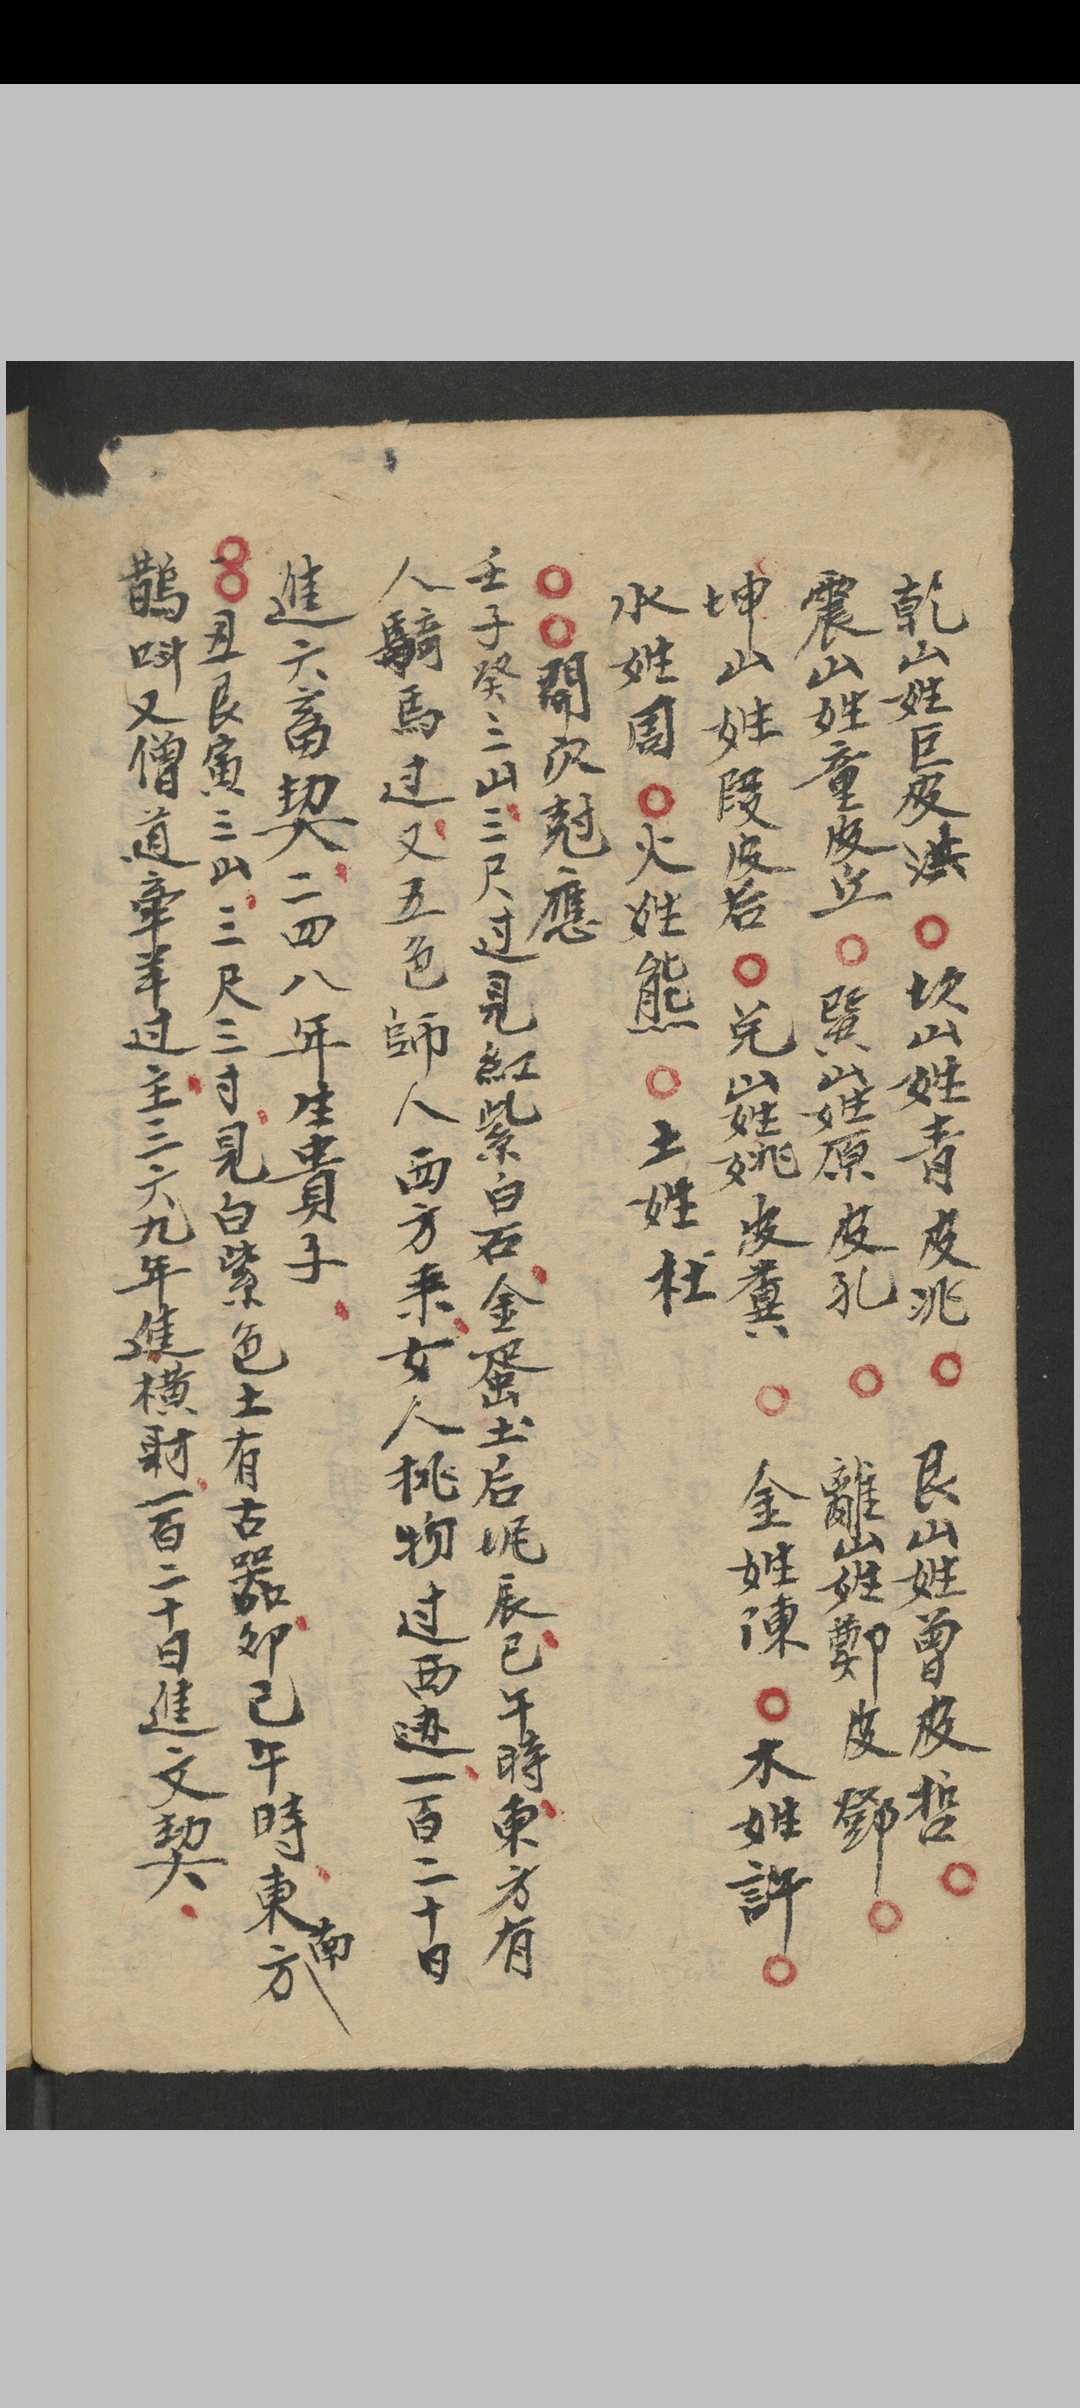 乾山姓巨皮洪○坎山姓青皮兆○艮山姓曾皮哲○
震山姓童皮丘○巽山姓原皮孔○離山姓鄭皮鄧○
坤山姓段皮后○兌山姓姚皮糞○金姓陳○木姓許○
水姓周○火姓熊○土姓杜
○○開穴尅應
壬子癸三山三尺过見紅紫白石金蚕土后坭辰巳午時東方有
人騎馬过又五色師人西方来女人挑物过西边一百二十日
進六畜契二四八年生貴子
○○丑艮寅三山三尺三寸見白紫色土有古器卯巳午時東南方
鵲叫又僧道牽羊过主三六九年進橫財一百二十日進文契